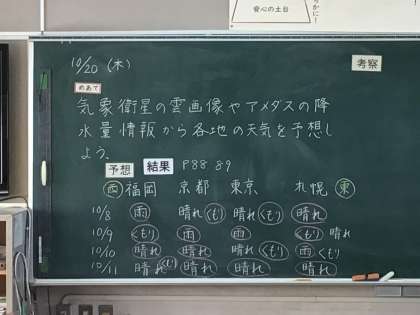 安心の土台
かに!
10/20 (木)
考察
めあて
気象衛星の雲画像やアメダスの降
水量情報から各地の天気を予想し
よう。
予想 結果 P88 89
西 福岡 京都 東京 札幌 東
10/8 雨 晴れ くもり 晴れ くもり 晴れ
10/9 くもり 雨 雨 くもり 晴れ
10/10 晴れ 晴れ 晴れ くもり 雨 くもり
10/11 晴れ くもり 晴れ 晴れ 晴れ